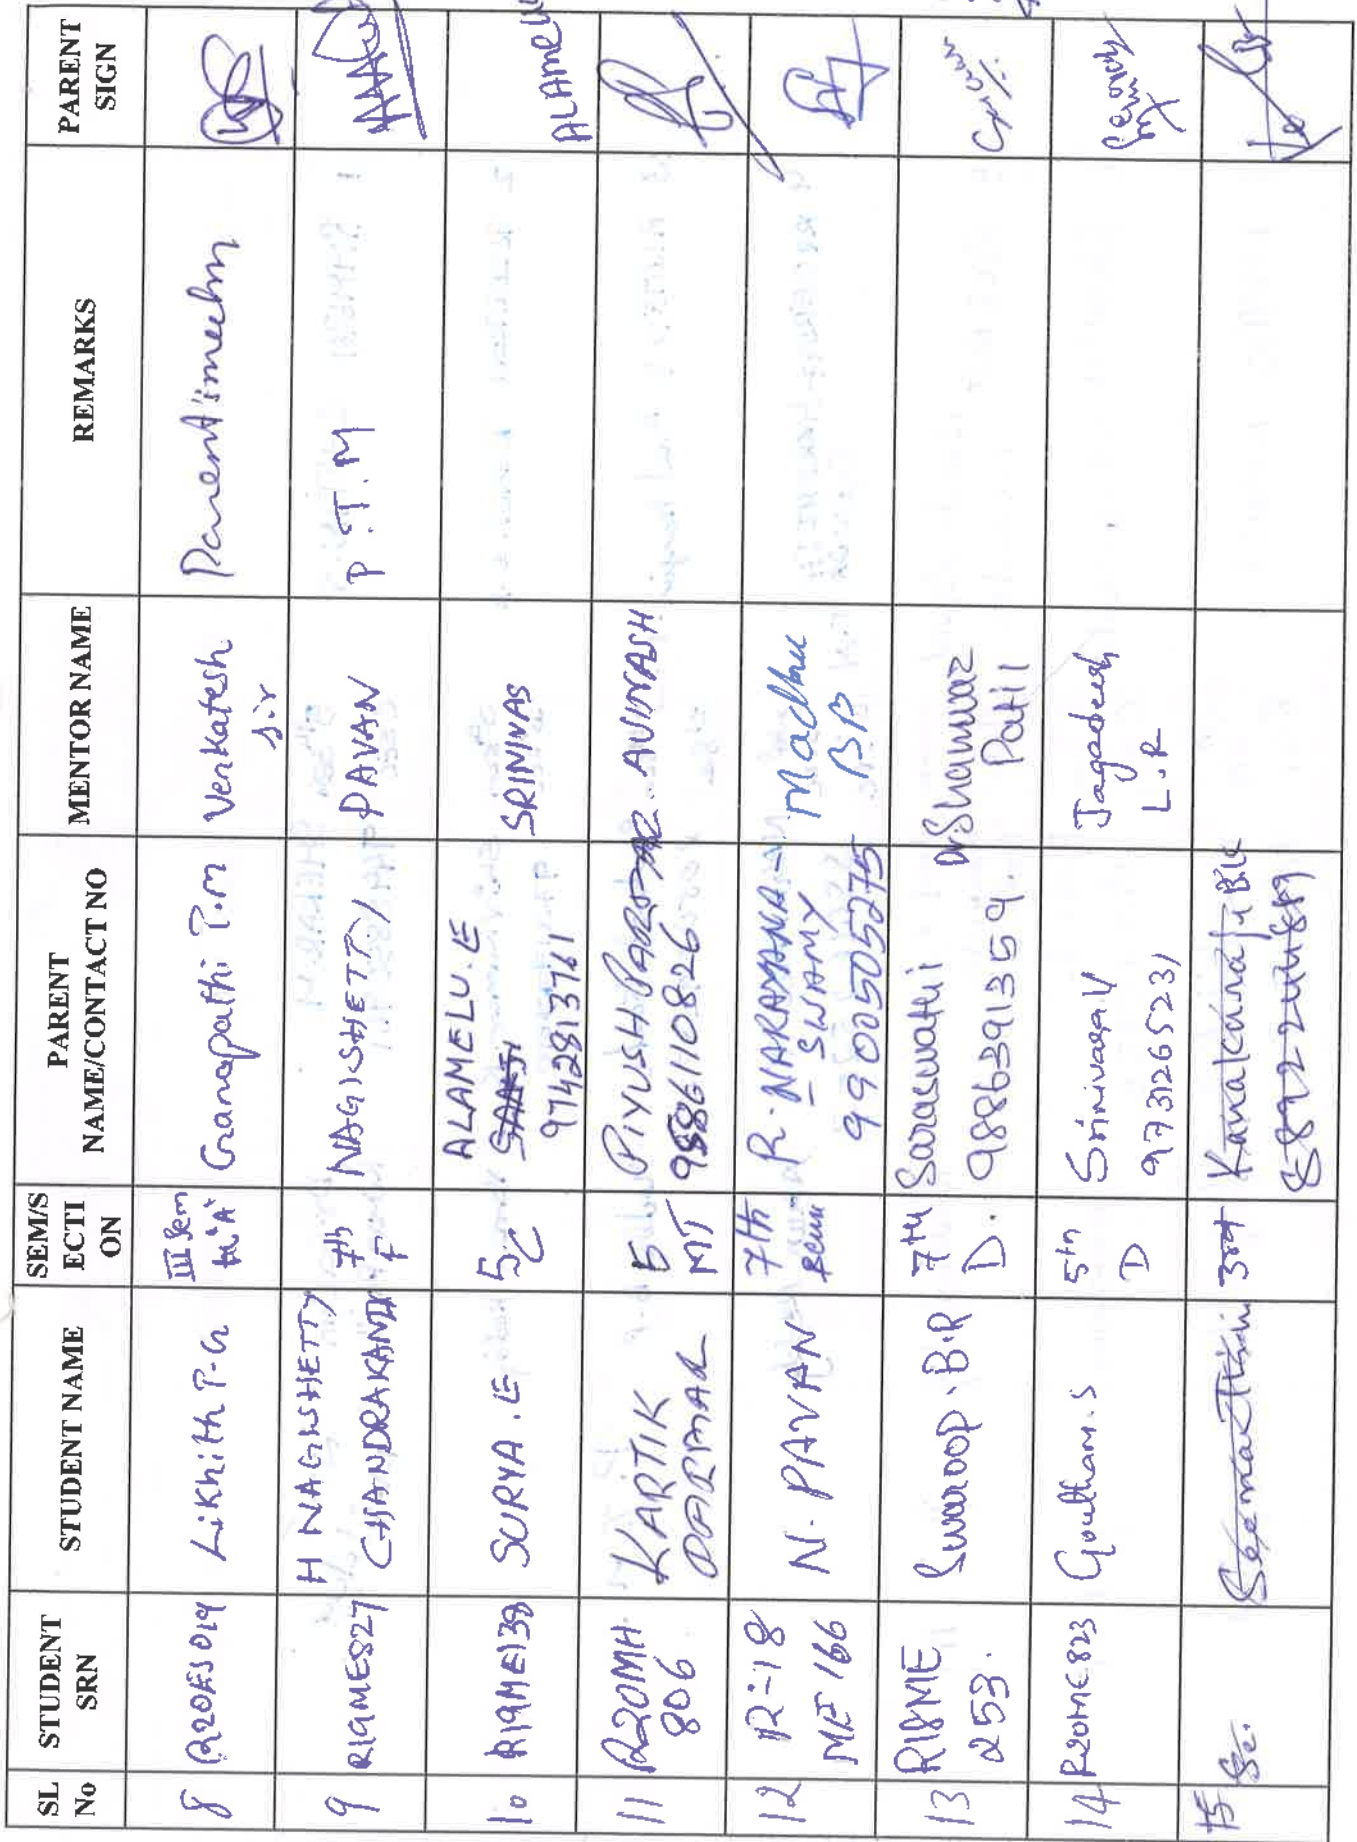 SL No STUDENT SRN STUDENT NAME SEM/S ECTI ON PARENT NAME/CONTACT NO MENTOR NAME REMARKS PARENT SIGN
8 R20ES019 Likhith P.G III Sem "A" Ganapathi P.M Venkatesh Sir
9 R19MES27 H NAGISHETTY CHANDRAKANTH 7th F NAGISHETTY PAVAN P.T.M
10 R19ME138 SURYA.E 5 C ALAMELU.E 9742813761 SRINIVAS
11 R20MH 806 KARTIK PARMAR 5 MT PIYUSH PARMAR 9886110826 AVINASH
12 R-18 ME 166 N. PAVAN 7th R. NARAYANA- SWAMY 9900505275 Madhu BP
13 R18ME 253. Swaroop.B.R 7th D. Saraswathi 9886391359. Dr Shamraz Patil
14 R20ME823 Goutham.S 5th D Srinivasa V 9731265231 Jagadeesh L.R
15 3rd